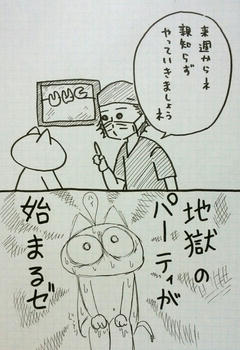 来週からネ
親知らず
やっていきましょう
ネ
ハイ
地獄の
パーティが
始まるぜ